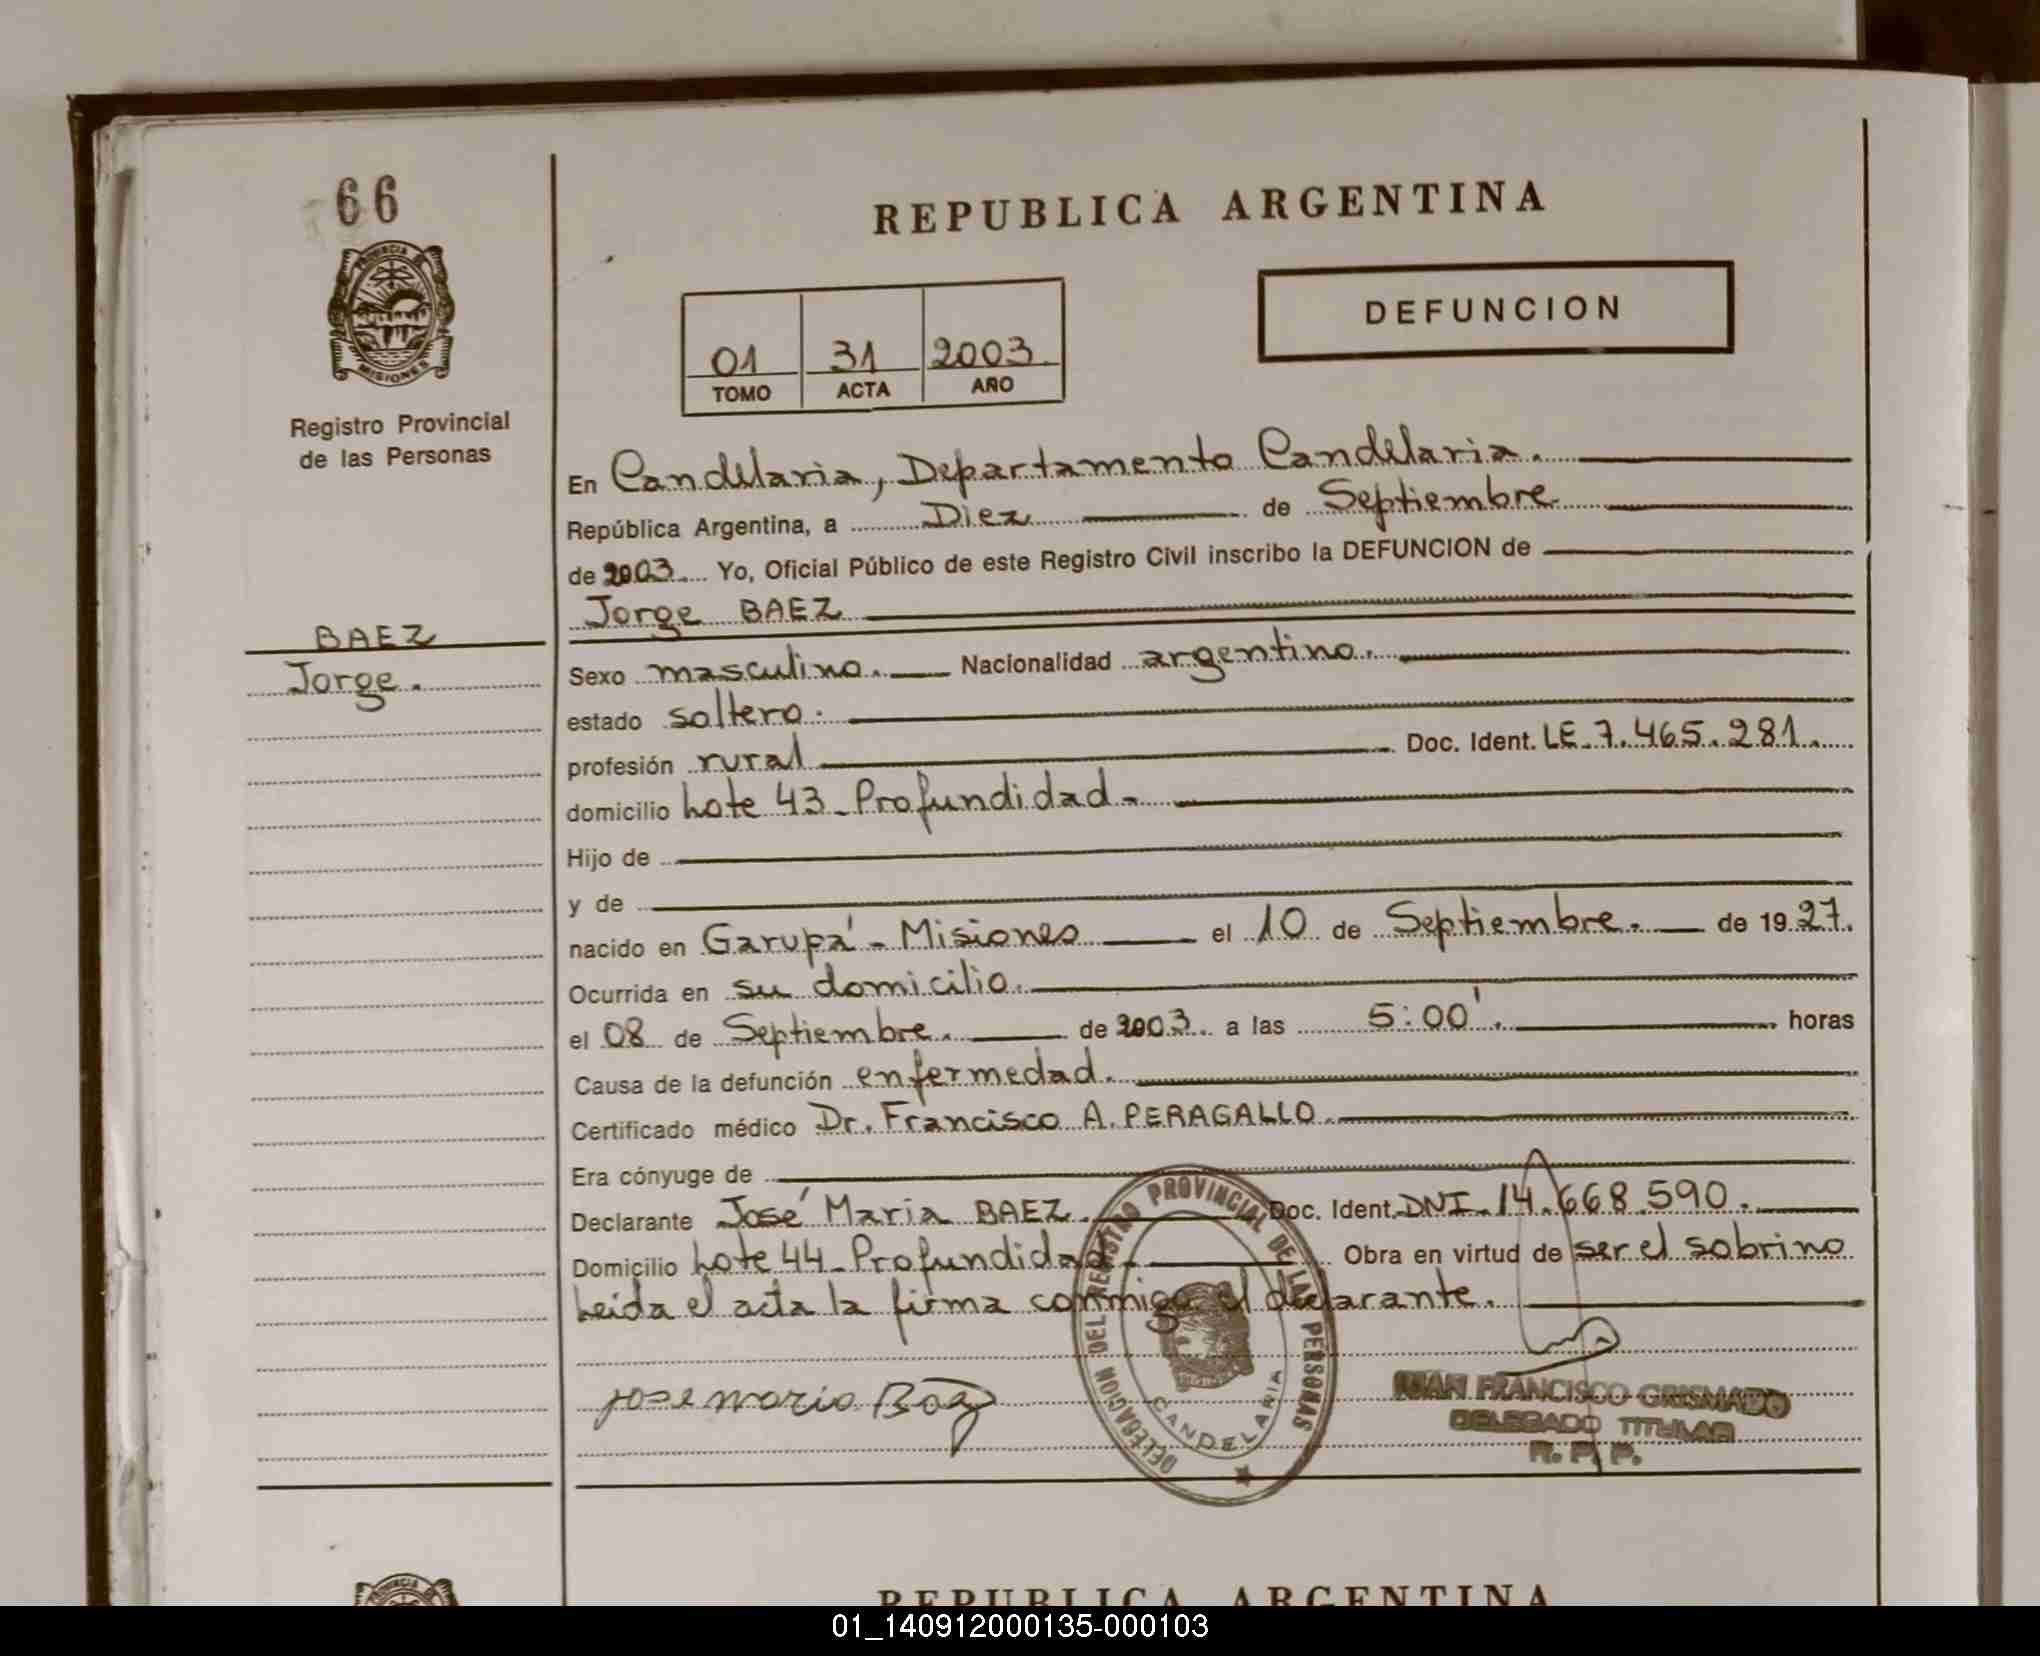 66
PROVINCIA DE
MISIONES
Registro Provincial
de las Personas
BAEZ
Jorge.
REPUBLICA ARGENTINA
DEFUNCION
01 31 2003
TOMO ACTA AÑO
En Candelaria, Departamento Candelaria.
República Argentina, a Diez de Septiembre
de 2003. Yo, Oficial Público de este Registro Civil inscribo la DEFUNCION de
Jorge BAEZ
Sexo masculino. Nacionalidad argentino.
estado soltero.
profesión rural Doc. Ident. LE.7.465.281.
domicilio Lote 43-Profundidad-
Hijo de
y de
nacido en Garupá-Misiones el 10 de Septiembre. de 1927.
Ocurrida en su domicilio.
el 08 de Septiembre. de 2003 a las 5:00'. horas
Causa de la defunción enfermedad.
Certificado médico Dr. Francisco A. PERAGALLO.
Era cónyuge de
Declarante José María BAEZ. Doc. Ident. DNI. 14.668.590.
Domicilio Lote 44-Profundidad. Obra en virtud de ser el sobrino
Leida el acta la firma conmigo el declarante.
jose maria Baez
DELEGACION DEL REGISTRO PROVINCIAL DE LAS PERSONAS
CANDELARIA
JUAN FRANCISCO GRISMADO
DELEGADO TITULAR
R. P. P.
REPUBLICA ARGENTINA
01_140912000135-000103